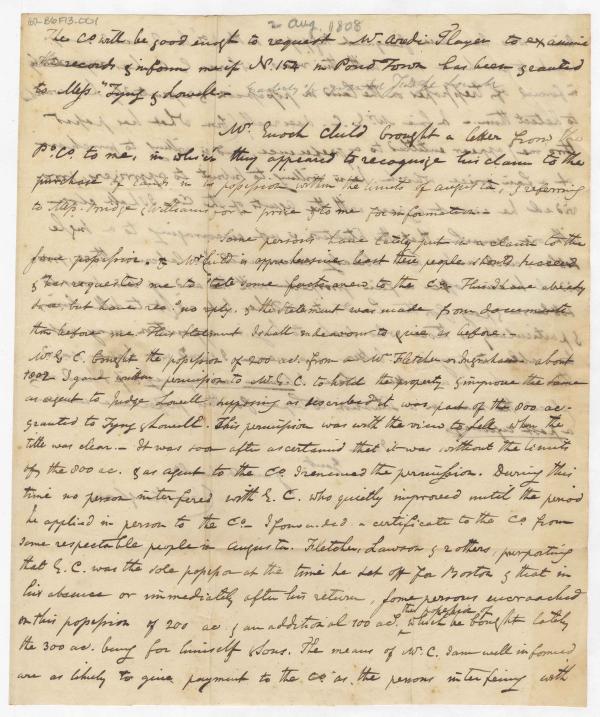 60-B6F13.001
2 Aug. 1808
The Co. will be good enogh to request Mr. Arodi Thayer to examine
the records & inform me if No. 154 in Pond Town has been granted
to Mess. Tyng & Lowell.
Mr. Enoch Child brought a letter from the
P. Co. to me, in which they appeared to recognize his claim to the
purchase of lands in his possession within the limits of Augusta, & referring
to Mess. Bridge & Williams for a price & to me for information.
Some persons have lately put in a claim to the
same possession. & Mr. Child is apprehensive least these people should succeed
& has requested me to state some facts anew to the Co. This I have already
done but have rec. no reply. & the statement was made from documents
then before me. This statement I shall endeavour to give as before.
Mr. E. C. bought the possession of 200 ac. from a Mr. Fletcher or Ingraham about
1802 I gave written permission to Mr. E. C. to hold the property & improve the same
as agent to Judge Lowell supposing as described it was part of the 800 ac.
granted to Tyng & Lowell. This permission was with the view to sell when the
title was clear. It was soon after ascertained that it was without the limits
of the 800 ac. & as agent to the Co. I renewed the permission. During this
time no person interfered with E. C. who quietly improved until the period
he applied in person to the Co. I forwarded a certificate to the Co from
some respectable people in Augusta. Fletcher, Lawson & 2 others, purporting
that E. C. was the sole possessor at the time he set off for Boston & that in
his absence or immediately after his return, some persons encroached
on this possession of 200 ac & an additional 100 ac. the possession of which he bought lately
the 300 ac. being for himself & Sons. The means of Mr. C. I am well informed
are as likely to give payment to the Co. as the persons interfering with